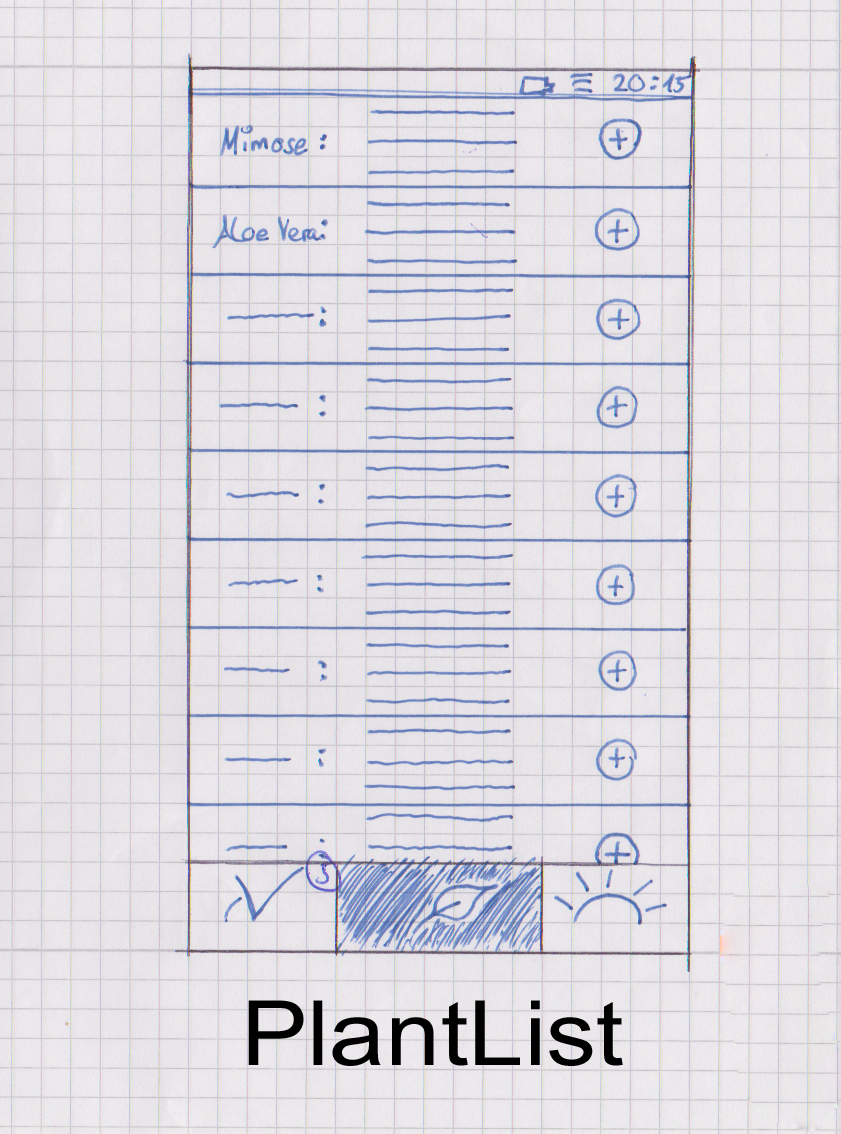 20:15
Mimose :
Aloe Vera:
3
PlantList